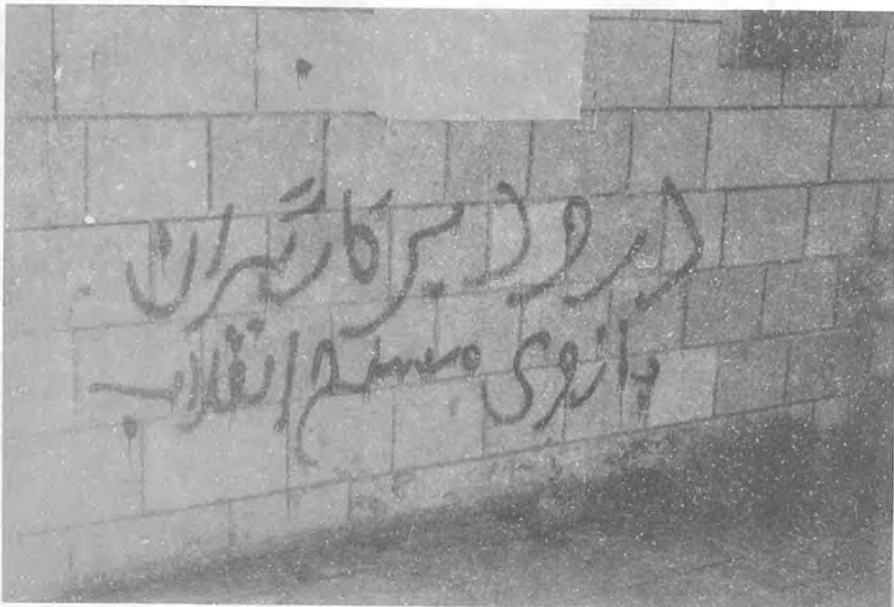 درود بر کارگران
بازوی مسلح انقلاب